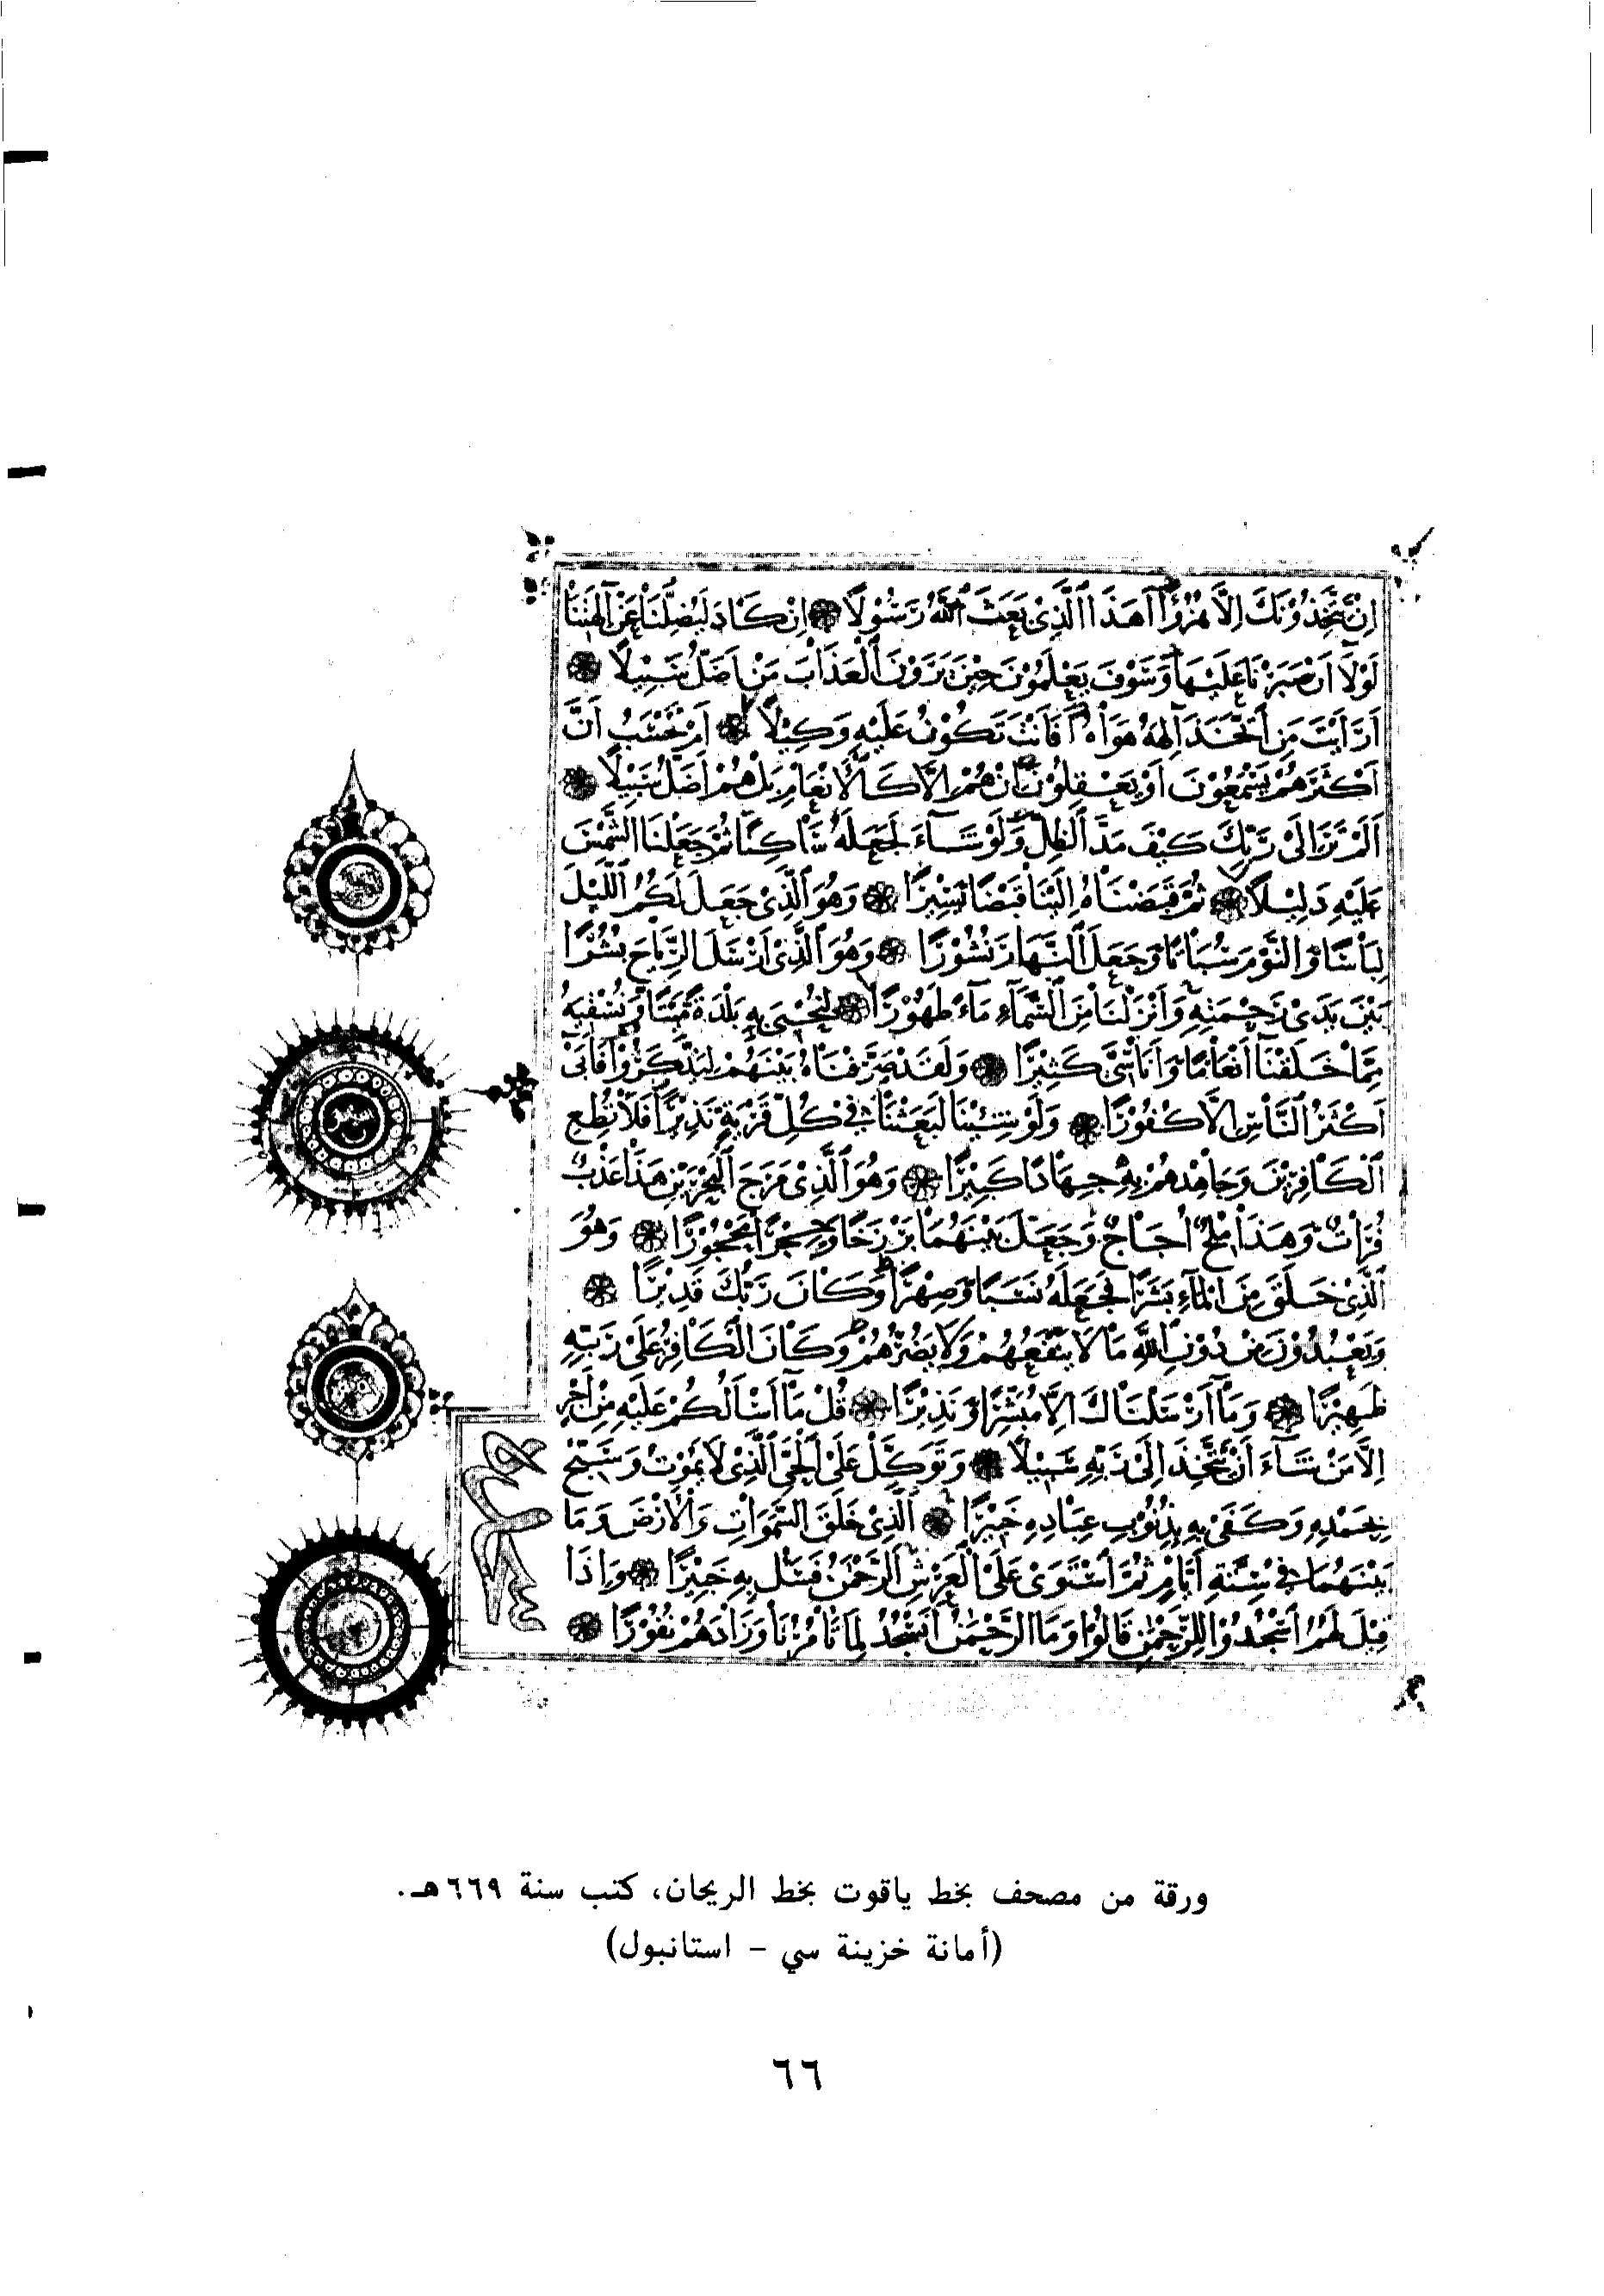 اِنْ يَتَّخِذُوْنَكَ اِلَّا هُزُوًا اَهَذَا الَّذِيْ بَعَثَ اللّٰهُ رَسُوْلًا اِنْ كَادَ لَيُضِلُّنَا عَنْ اٰلِهَتِنَا
لَوْلَا اَنْ صَبَرْنَا عَلَيْهَا وَسَوْفَ يَعْلَمُوْنَ حِيْنَ يَرَوْنَ الْعَذَابَ مَنْ اَضَلُّ سَبِيْلًا
اَرَاَيْتَ مَنِ اتَّخَذَ اِلٰهَهُ هَوَاهُ اَفَاَنْتَ تَكُوْنُ عَلَيْهِ وَكِيْلًا اَمْ تَحْسَبُ اَنَّ
اَكْثَرَهُمْ يَسْمَعُوْنَ اَوْ يَعْقِلُوْنَ اِنْ هُمْ اِلَّا كَالْاَنْعَامِ بَلْ هُمْ اَضَلُّ سَبِيْلًا
اَلَمْ تَرَ اِلَى رَبِّكَ كَيْفَ مَدَّ الظِّلَّ وَلَوْ شَآءَ لَجَعَلَهُ سَاكِنًا ثُمَّ جَعَلْنَا الشَّمْسَ
عَلَيْهِ دَلِيْلًا ثُمَّ قَبَضْنَاهُ اِلَيْنَا قَبْضًا يَسِيْرًا وَهُوَ الَّذِيْ جَعَلَ لَكُمُ اللَّيْلَ
لِبَاسًا وَالنَّوْمَ سُبَاتًا وَجَعَلَ النَّهَارَ نُشُوْرًا وَهُوَ الَّذِيْ اَرْسَلَ الرِّيَاحَ بُشْرًا
بَيْنَ يَدَيْ رَحْمَتِهِ وَاَنْزَلْنَا مِنَ السَّمَآءِ مَآءً طَهُوْرًا لِنُحْيِيَ بِهِ بَلْدَةً مَيْتًا وَنُسْقِيَهُ
مِمَّا خَلَقْنَا اَنْعَامًا وَاَنَاسِيَّ كَثِيْرًا وَلَقَدْ صَرَّفْنَاهُ بَيْنَهُمْ لِيَذَّكَّرُوْا فَاَبَى
اَكْثَرُ النَّاسِ اِلَّا كُفُوْرًا وَلَوْ شِئْنَا لَبَعَثْنَا فِيْ كُلِّ قَرْيَةٍ نَذِيْرًا فَلَا تُطِعِ
الْكَافِرِيْنَ وَجَاهِدْهُمْ بِهِ جِهَادًا كَبِيْرًا وَهُوَ الَّذِيْ مَرَجَ الْبَحْرَيْنِ هَذَا عَذْبٌ
فُرَاتٌ وَهَذَا مِلْحٌ اُجَاجٌ وَجَعَلَ بَيْنَهُمَا بَرْزَخًا وَحِجْرًا مَحْجُوْرًا وَهُوَ
الَّذِيْ خَلَقَ مِنَ الْمَآءِ بَشَرًا فَجَعَلَهُ نَسَبًا وَصِهْرًا وَكَانَ رَبُّكَ قَدِيْرًا
وَيَعْبُدُوْنَ مِنْ دُوْنِ اللّٰهِ مَا لَا يَنْفَعُهُمْ وَلَا يَضُرُّهُمْ وَكَانَ الْكَافِرُ عَلَى رَبِّهِ
ظَهِيْرًا وَمَآ اَرْسَلْنَاكَ اِلَّا مُبَشِّرًا وَنَذِيْرًا قُلْ مَآ اَسْاَلُكُمْ عَلَيْهِ مِنْ اَجْرٍ
اِلَّا مَنْ شَآءَ اَنْ يَتَّخِذَ اِلَى رَبِّهِ سَبِيْلًا وَتَوَكَّلْ عَلَى الْحَيِّ الَّذِيْ لَا يَمُوْتُ وَسَبِّحْ
بِحَمْدِهِ وَكَفَى بِهِ بِذُنُوْبِ عِبَادِهِ خَبِيْرًا الَّذِيْ خَلَقَ السَّمَوَاتِ وَالْاَرْضَ وَمَا
بَيْنَهُمَا فِيْ سِتَّةِ اَيَّامٍ ثُمَّ اسْتَوَى عَلَى الْعَرْشِ الرَّحْمٰنُ فَسْئَلْ بِهِ خَبِيْرًا وَاِذَا
قِيْلَ لَهُمُ اسْجُدُوْا لِلرَّحْمٰنِ قَالُوْا وَمَا الرَّحْمٰنُ اَنَسْجُدُ لِمَا تَاْمُرُنَا وَزَادَهُمْ نُفُوْرًا
ورقة من مصحف بخط ياقوت بخط الريحان، كتب سنة ٦٦٩هـ.
(أمانة خزينة سي - استانبول)
٦٦